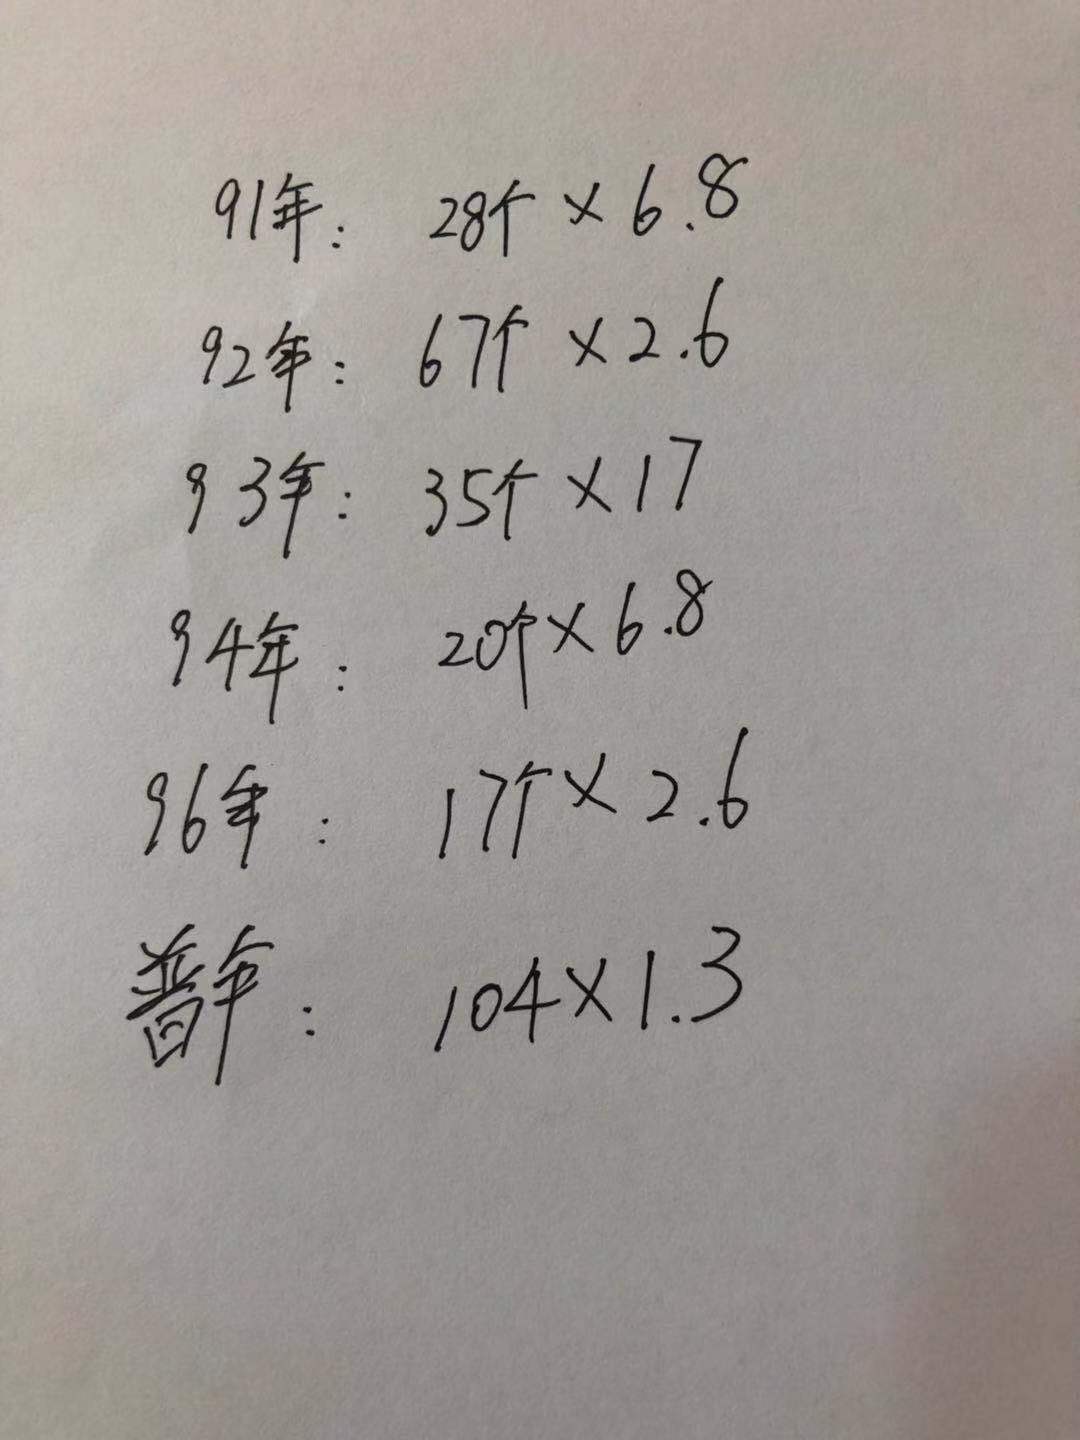 91年: 28个×6.8
92年: 67个×2.6
93年: 35个×17
94年: 20个×6.8
96年: 17个×2.6
普年: 104×1.3